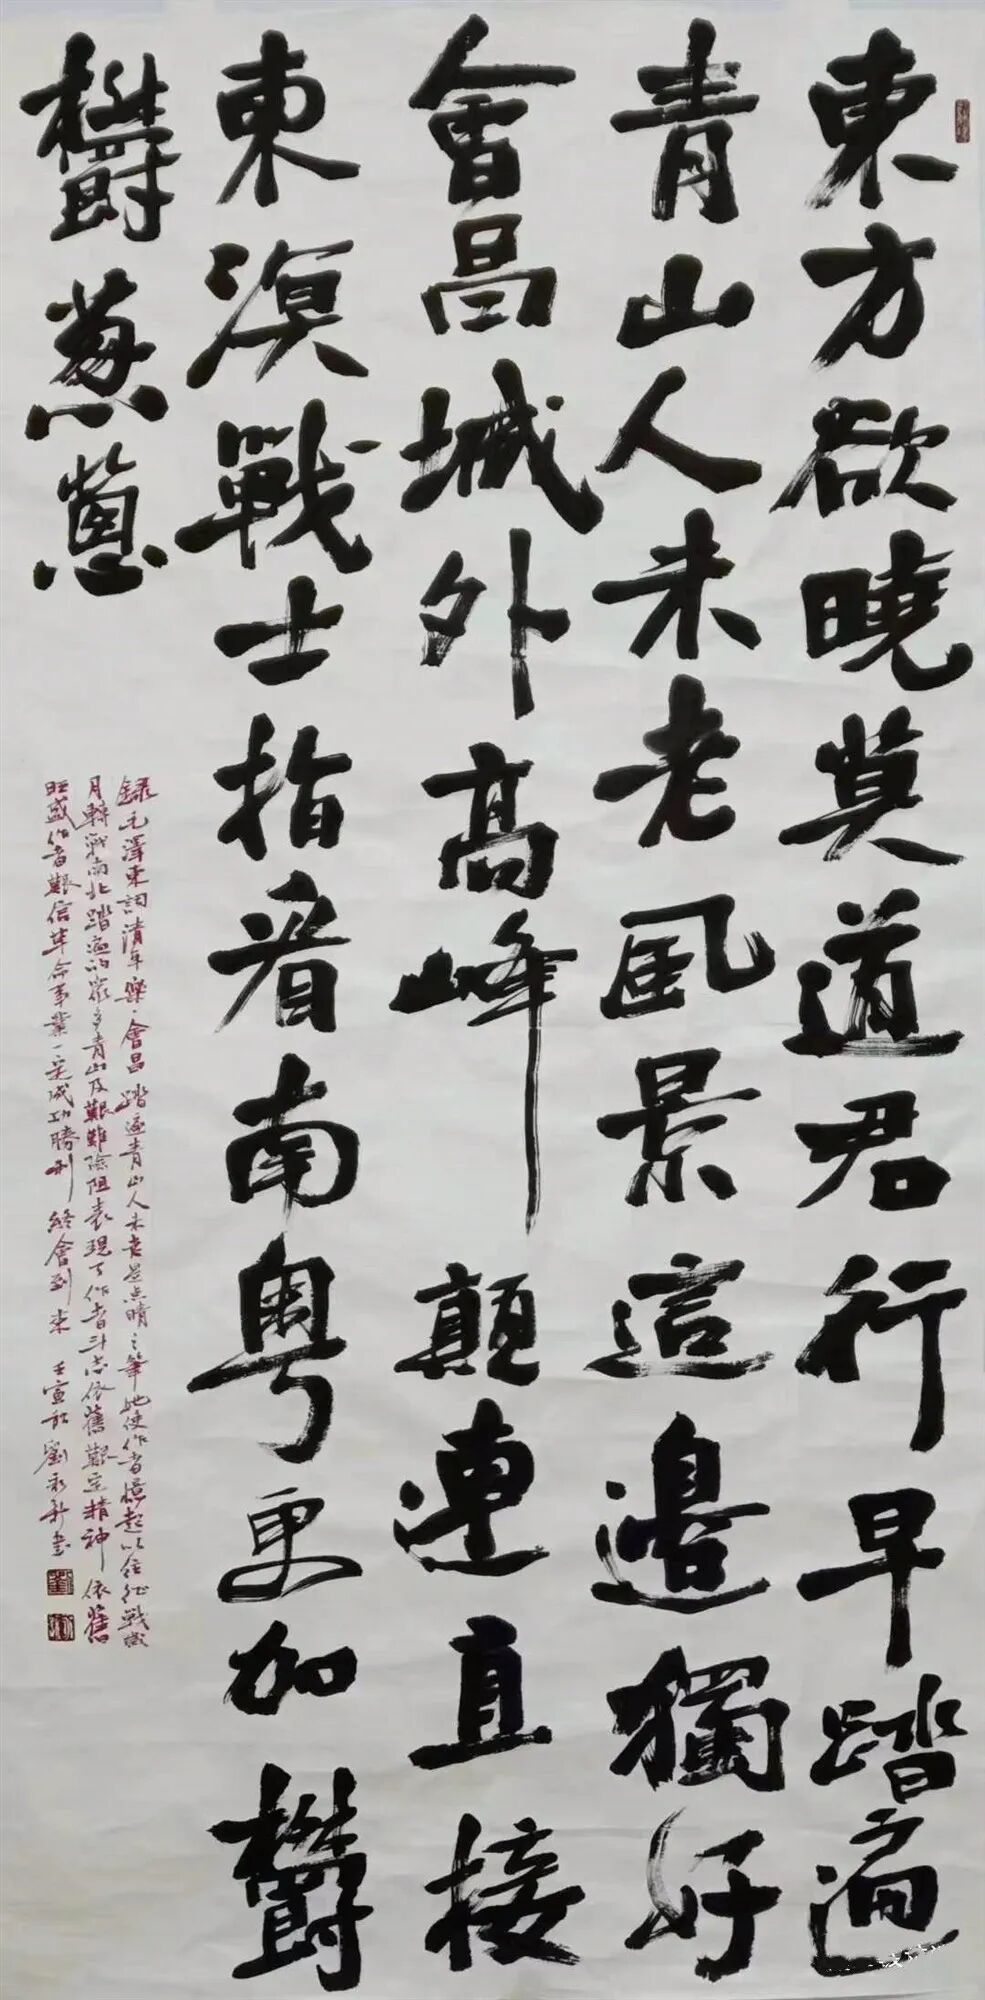 東方欲曉莫道君行早踏遍
青山人未老風景這邊獨好
會昌城外高峰顛連直接
東溟戰士指看南粵更加欝
欝蔥蔥
錄毛澤東詞清平樂·會昌踏遍青山人未老是点晴之筆她使作者憶起以往征戰歲
月轉戰南北踏遍的眾多青山及艱難險阻表現了作者斗志依舊艱定精神依舊
旺盛作者艱信革命事業一定成功勝利終會到来 壬寅秋劉永升書